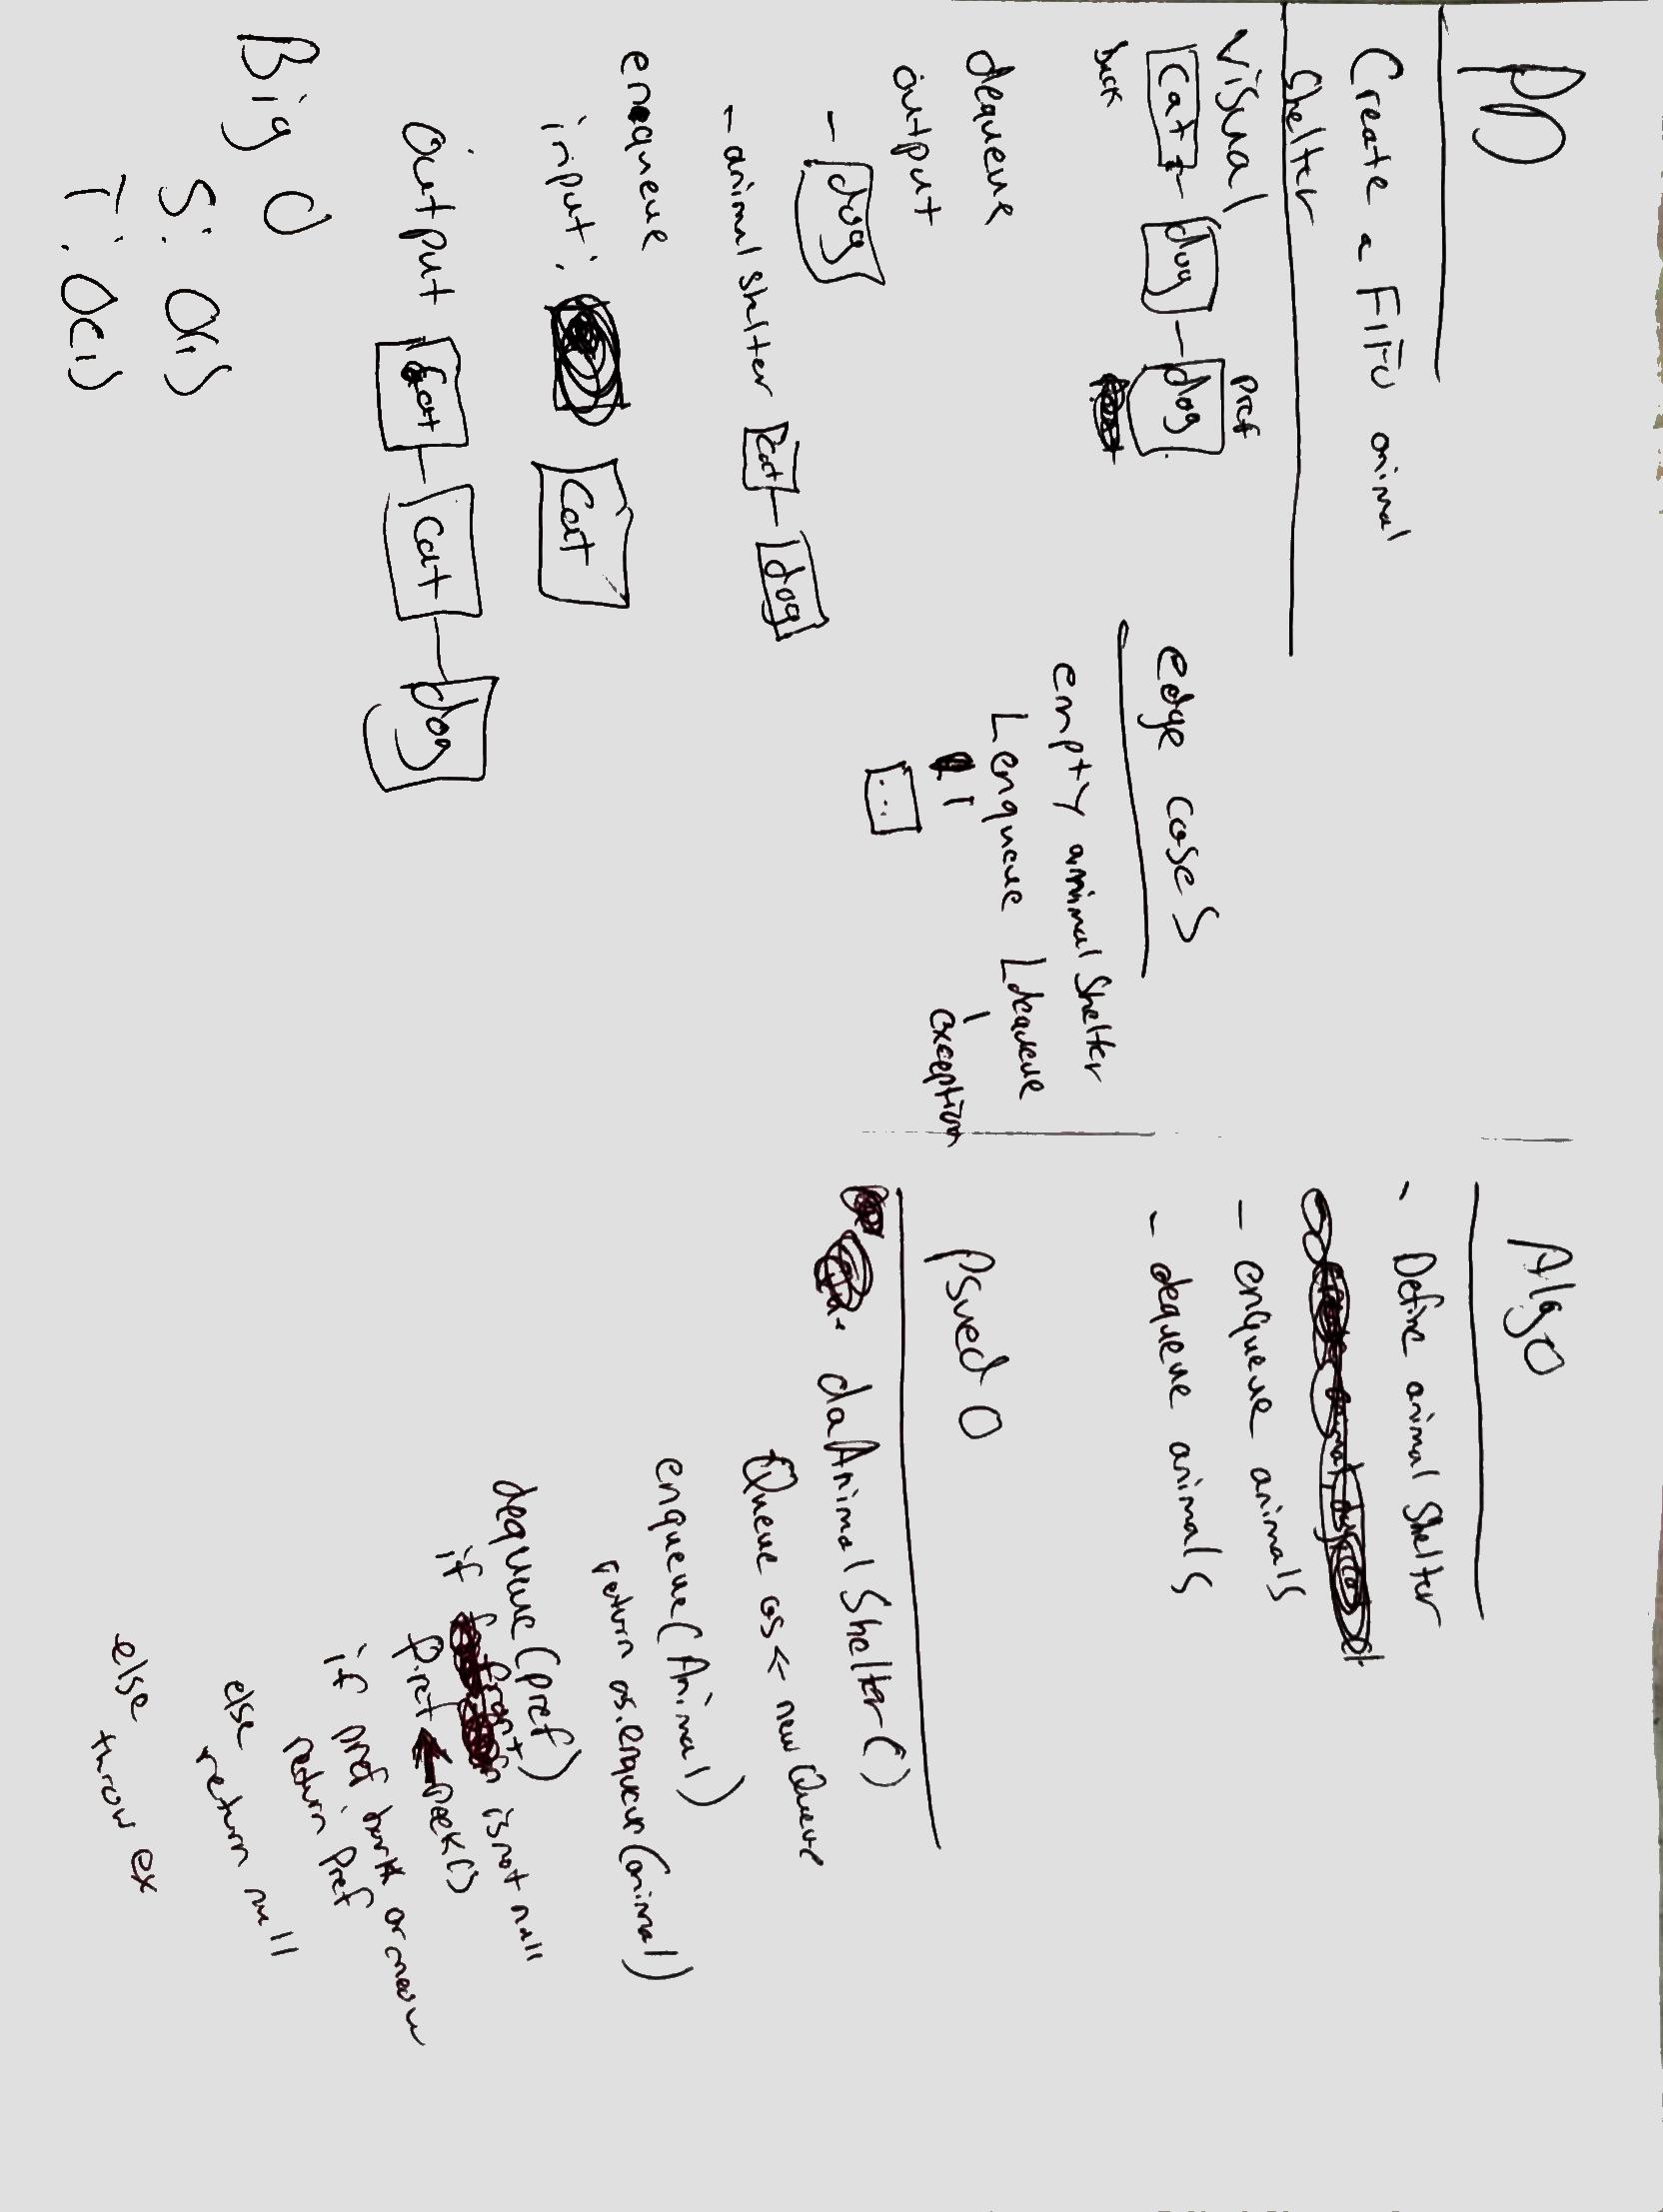 PD
Create a FIFO animal
Shelter
Visual
pref
Cat dog dog
back
dequeue
output
- dog
- animal shelter cat dog
enqueue
input: Cat
output Cat Cat dog
Big O
S: O(1)
T: O(1)
edge cases
empty animal Shelter
enqueue dequeue
...
exception
Algo
- Define animal Shelter
- enqueue animals
- dequeue animals
Psuedo
daAnimalShelter()
Queue as <- new Queue
enqueue(Animal)
return as.enqueue(animal)
dequeue(pref)
if front is not null
pref <- peek()
if pref bark or meow
return pref
else
return null
else
throw ex